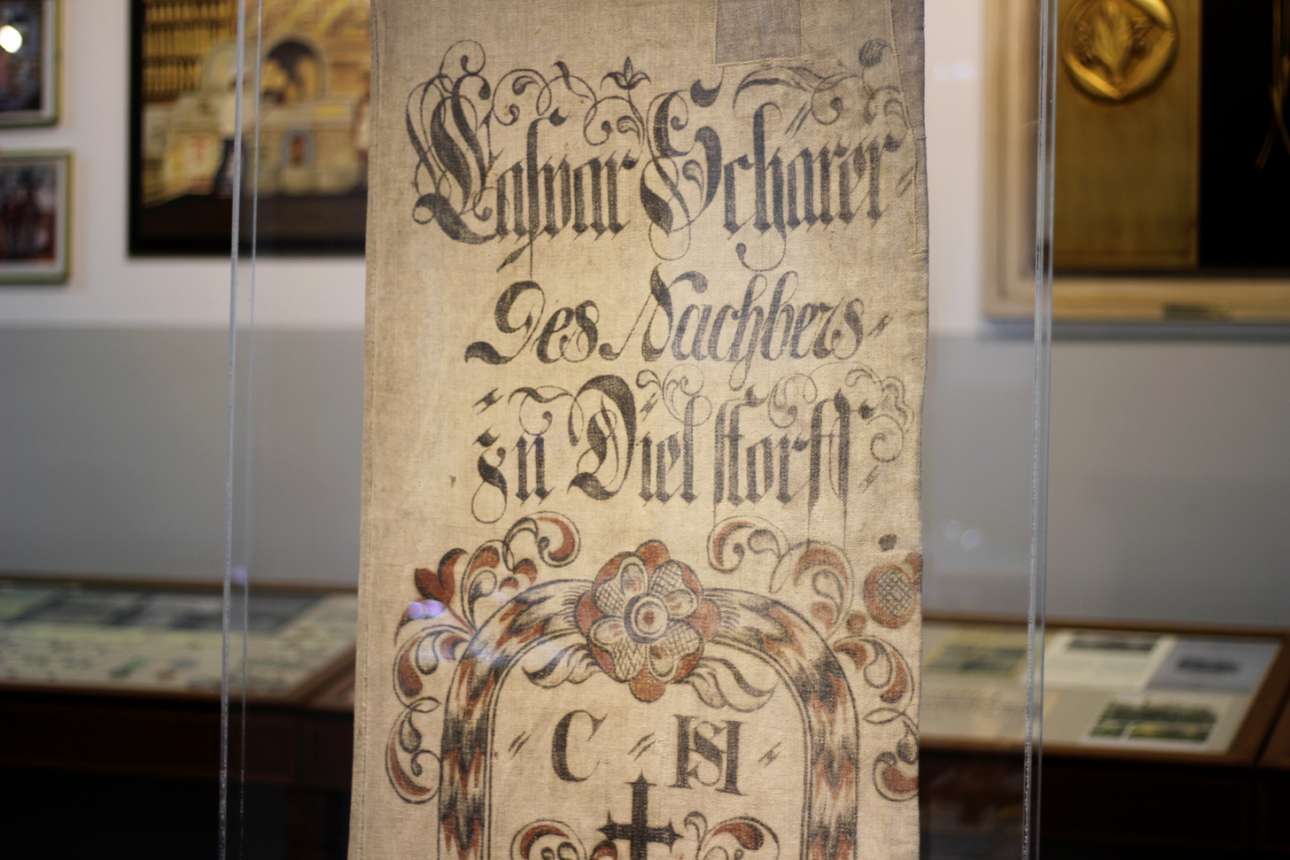 Caspar Schärer
Des Nachbers
zu Dielstorff
C HS